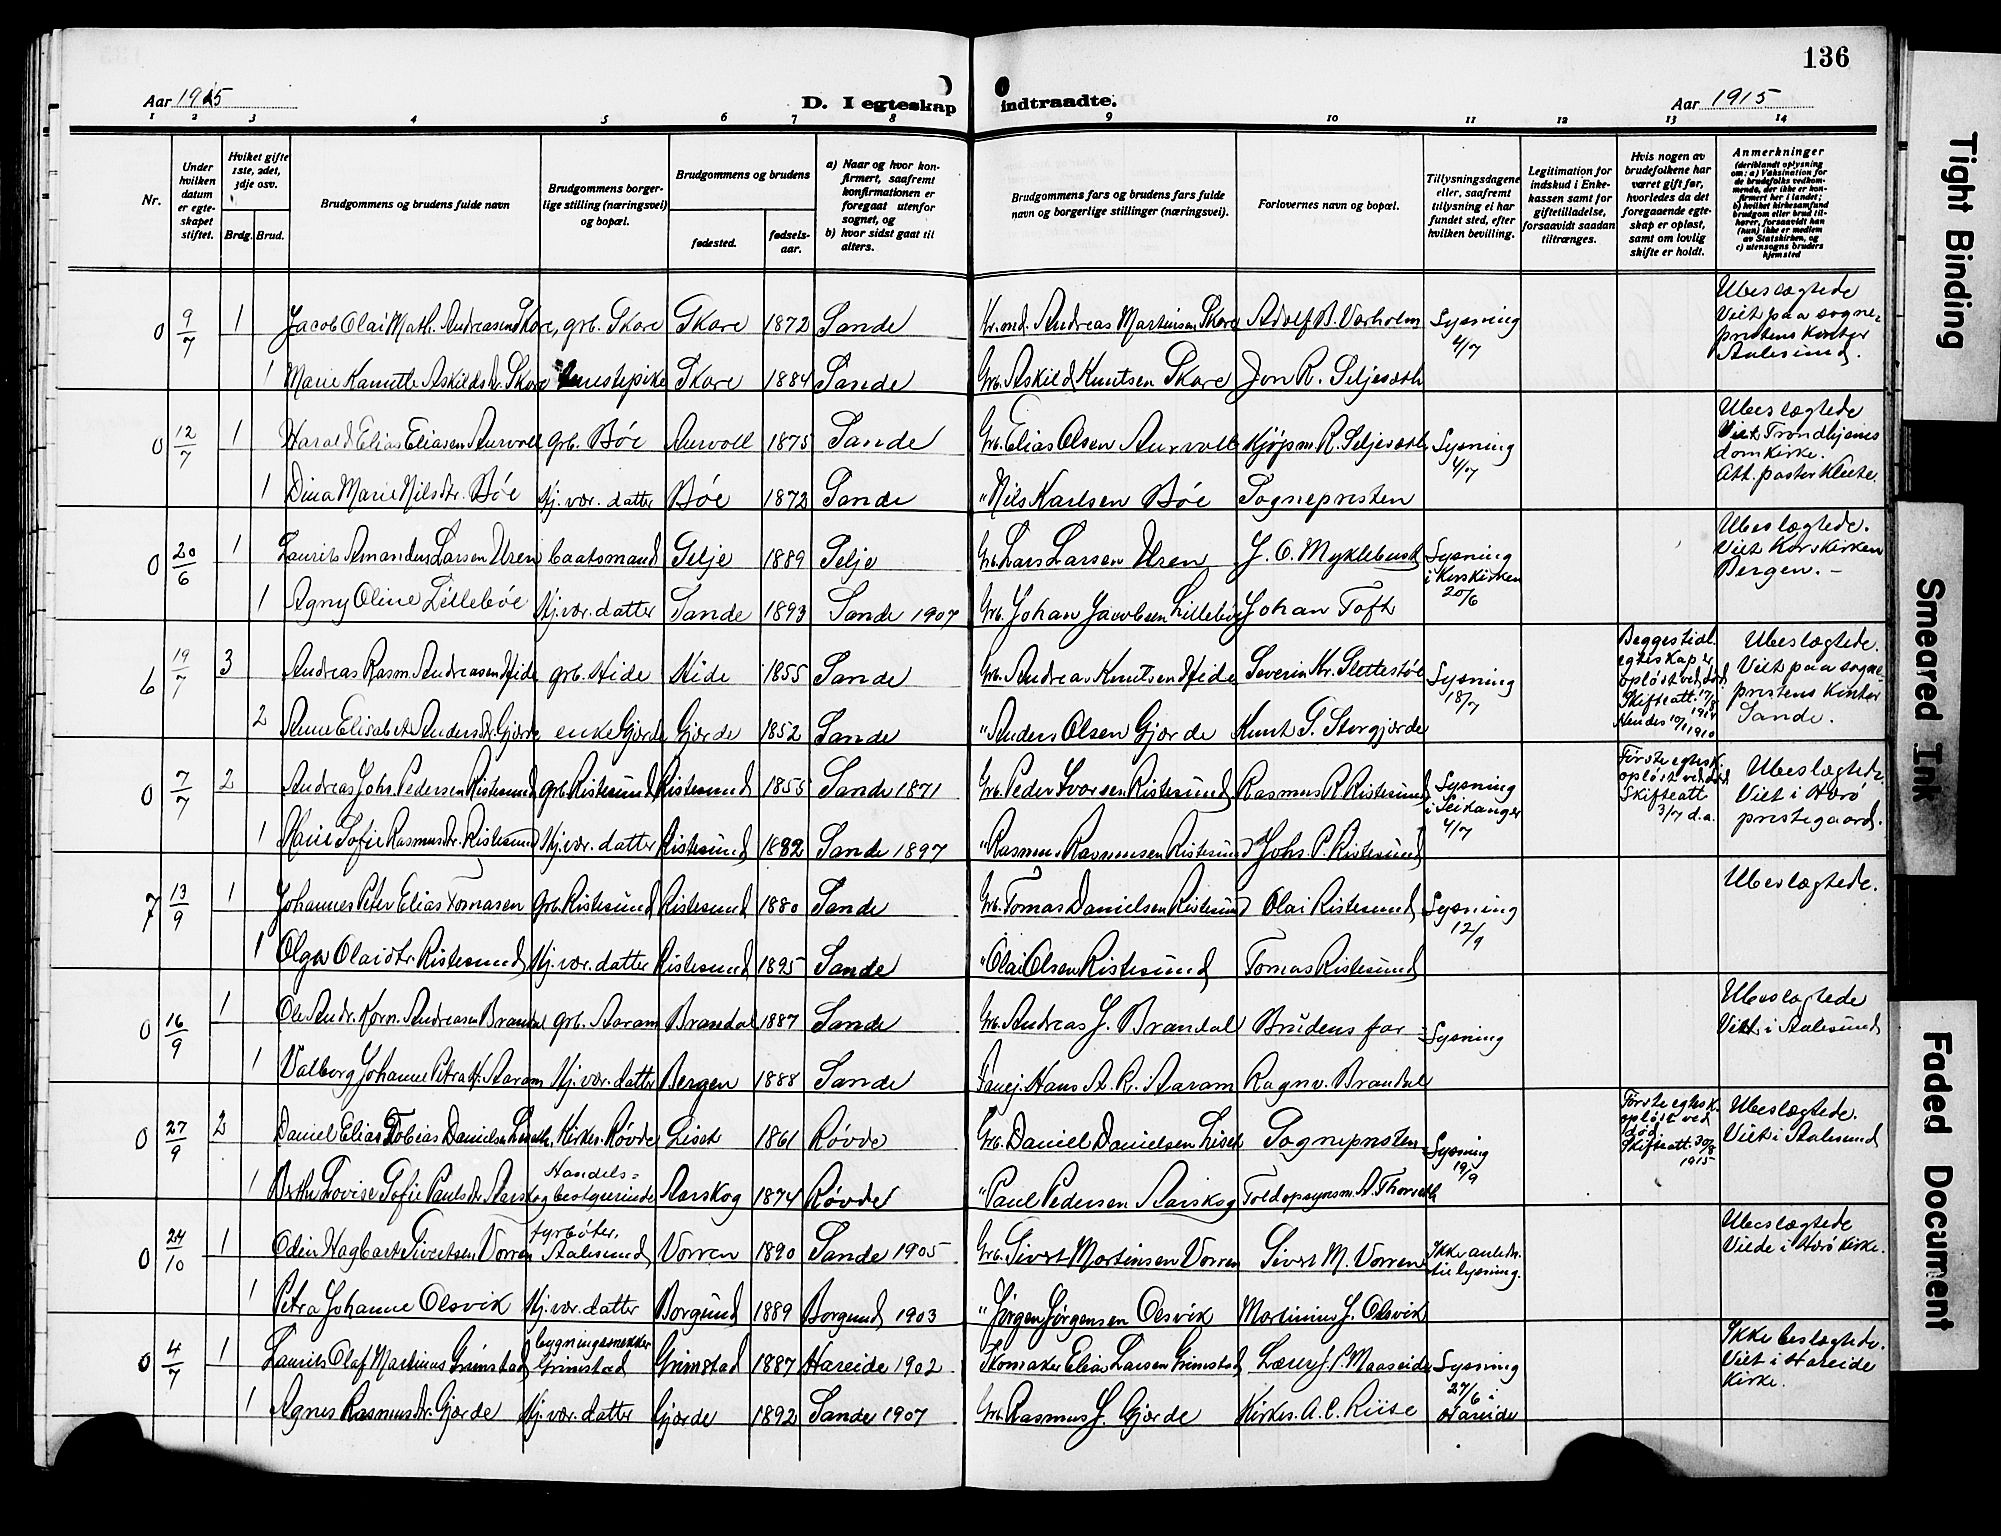 136
Aar 1915
D. I egteskap indtraadte.
Aar 1915
1 2 3 4 5 6 7 8 9 10 11 12 13 14
Nr.
Under hvilken datum er egteskapet stiftet.
Hviket gifte 1ste, 2det, 3dje osv.
Brdg. Brud.
Brudgommens og brudens fulde navn
Brudgommens borgerlige stilling (næringsvei) og bopæl.
Brudgommens og brudens
fødested.
fødselsaar.
a) Naar og hvor konfirmert, saafremt konfirmationen er foregaat utenfor sognet, og b) hvor sidst gaat til alters.
Brudgommens fars og brudens fars fulde navn og borgerlige stillinger (næringsvei).
Forlovernes navn og bopæl.
Tillysningsdagene eller, saafremt tillysning ei har fundet sted, efter hvilken bevilling.
Legitimation for indskud i Enkekassen samt for giftetilladelse, forsaavidt saadan tiltrænges.
Hvis nogen av brudefolkene har været gift før, hvorledes da det foregaaende egteskap er opløst, samt om lovlig skifte er holdt.
Anmerkninger (deriblandt oplysning om: a) Vaksination for de brudefolks vedkommende, der ikke er konfirmert her i landet; b) hvilket kirkesamfund brudgom eller brud tilhører, forsaavidt han (hun) ikke er medlem av Statskirken, og c) utensogns bruders hjemsted
0 9/7 1 Jacob Olai Math. Andreasen Skare, grb. Skare Skare 1872 Sande Kr.md. Andreas Martinsen Skare Adolf B. Varholm Lysning 4/7 Ubeslægtede Viet paa sogneprestens kontor Aalesund.
1 Marie Kamille Askildsdr. Skare Skare 1884 Sande Grb. Askild Knutsen Skare Jon R. Seljeseth
0 12/7 1 Harald Elias Eliasen Aurvoll grb. Bøe Aurvoll 1875 Sande Grb. Elias Olsen Aurvoll Kjøpm. R. Seljeseth Lysning 4/7 Ubeslægtede Viet Trondhjems domkirke. Att. pastor Klete
1 Dina Marie Nilsdtr. Bøe Hj. vær. datter Bøe 1872 Sande " Nils Karlsen Bøe Sognepresten
0 20/6 1 Laurits Amandus Larsen Uren baatsmand Selje 1889 Selje Grb. Lars Larsen Uren J. O. Myklebust Lysning i Korskirken 20/6 Ubeslægtede. Viet Korskirken Bergen. –
1 Agny Oline Lillebøe Hj. vær. datter Sande 1893 Sande 1907 Grb. Johan Jacobsen Lillebøe Johan Toft
6 19/7 3 Andreas Rasm. Andreasen Hide grb. Hide Hide 1855 Sande Grb. Andreas Knutsen Hide Severin Kr. Slettestøl Lysning 18/7 Begges tidl. egteskap er opløst ved død Skifteatt. 17/8 1914 Hendes 10/1 1910 Ubeslægtede. Viet paa sogneprestens kontor Sande.
2 Anne Elisabete Andersdr. Gjærde enke Gjærde Gjærde 1852 Sande " Anders Olsen Gjærde Knut T. Storgjærde
0 7/7 2 Andreas Johs. Pedersen Ristesund grb. Ristesund Ristesund 1855 Sande 1871 Grb. Peder Ivarsen Ristesund Rasmus R. Ristesund Lysning i Leikanger 4/7 Første egtesk. opløst ved død Skifteatt. 3/7 d.a. Ubeslægtede Viet i Herø prestegaard.
1 Marie Sofie Rasmusdr. Ristesund Hj. vær. datter Ristesund 1882 Sande 1897 " Rasmus Rasmussen Ristesund Johs. P. Ristesund
7 13/9 1 Johannes Peter Elias Tomasen grb. Ristesund Ristesund 1880 Sande Grb. Tomas Danielsen Ristesund Olai Ristesund Lysning 12/9 Ubeslægtede.
1 Olga Olaidtr. Ristesund Hj. vær. datter Ristesund 1895 Sande " Olai Olsen Ristesund Tomas Ristesund
0 16/9 1 Ole Andr. Korn. Andreasen Brandal grb. Aaram Brandal 1887 Sande Grb. Andreas J. Brandal Brudens far Lysning Ubeslægtede Viet i Aalesund
1 Valborg Johanne Petra H. Aaram Hj. vær. datter Bergen 1888 Sande Hans A. R. Aaram Ragnv. Brandal
0 27/9 2 Daniel Elias Tobias Danielsen Kirkes. Røvde Liset 1861 Røvde Grb. Daniel Danielsen Liset Sognepresten Lysning 19/9 Første egtesk. opløst ved død Skifteatt. 30/8 1915 Ubeslægtede. Viet i Aalesund
1 Berthe Lovise Sofie Paulsdr. Aarskog Handelsbestyrerinde Aarskog 1874 Røvde " Paul Pedersen Aarskog Toldopsynsm. A. Thorseth
0 24/10 1 Odin Hagbart Sivertsen Vorren fyrbøter, Aalesund Vorren 1890 Sande 1905 Grb. Sivert Martinsen Vorren Sivert M. Vorren Ikke anledn. til lysning. Ubeslægtede Viede i Herø Kirke.
1 Petra Johanne Olsvik Hj. vær. datter Borgund 1889 Borgund 1903 " Jørgen Jørgensen Olsvik Martinius J. Olsvik
0 4/7 1 Laurits Olaf Martinus Grimstad bygningssnekker Grimstad Grimstad 1887 Hareide 1902 Skomaker Elias Larsen Grimstad Lærer J. P. Maaseide Lysning 27/6 i Hareide Ikke beslægtede. Viet i Hareide Kirke.
1 Agnes Rasmusdtr. Gjærde Hj. vær. datter Gjærde 1892 Sande 1907 Grb. Rasmus J. Gjærde Kirkes. A. C. Riise
Tight Binding
Smeared Ink
Faded Document